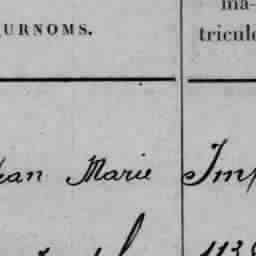 URNOMS.
ma-
tricule
ean Marie Imp
113